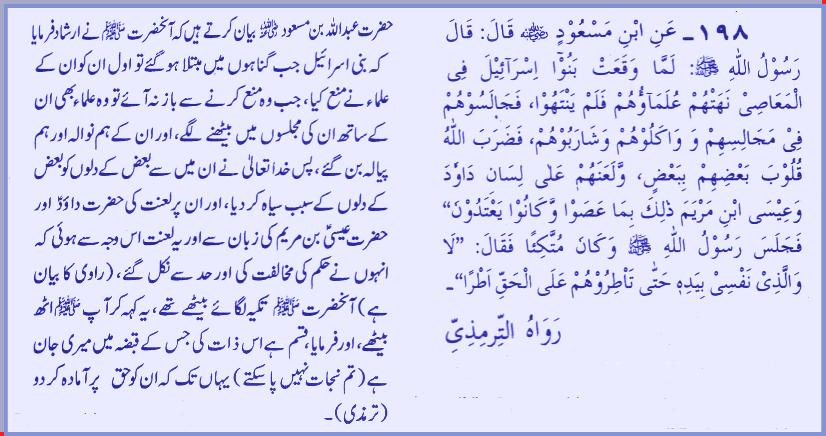 ۱۹۸۔ عَنِ ابْنِ مَسْعُوْدٍ ﷺ قَالَ: قَالَ
رَسُوْلُ اللهِ ﷺ: لَمَّا وَقَعَتْ بَنُوْٓا اِسْرَآئِيْلَ فِى
الْمَعَاصِىْ نَهَتْهُمْ عُلَمَاؤُهُمْ فَلَمْ يَنْتَهُوْا، فَجَالَسُوْهُمْ
فِىْ مَجَالِسِهِمْ وَ وَاكَلُوْهُمْ وَشَارَبُوْهُمْ، فَضَرَبَ اللهُ
قُلُوْبَ بَعْضِهِمْ بِبَعْضٍ، وَّلَعَنَهُمْ عَلٰى لِسَانِ دَاوٗدَ
وَعِيْسَى ابْنِ مَرْيَمَ ذٰلِكَ بِمَا عَصَوْا وَّكَانُوْا يَعْتَدُوْنَ“
فَجَلَسَ رَسُوْلُ اللهِ ﷺ وَكَانَ مُتَّكِئًا فَقَالَ: ”لَا
وَالَّذِىْ نَفْسِىْ بِيَدِهٖ حَتّٰى تَاْطِرُوْهُمْ عَلَى الْحَقِّ اَطْرًا“۔
رَوَاهُ التِّرمِذِيِّ
حضرت عبداللہ بن مسعود ﷺ بیان کرتے ہیں کہ آنحضرت ﷺ نے ارشاد فرمایا
کہ بنی اسرائیل جب گناہوں میں مبتلا ہوگئے تو اول ان کو ان کے
علماء نے منع کیا، جب وہ منع کرنے سے باز نہ آئے تو وہ علماء بھی ان
کے ساتھ ان کی مجلسوں میں بیٹھنے لگے، اور ان کے ہم نوالہ اور ہم
پیالہ بن گئے، پس خدا تعالیٰ نے ان میں سے بعض کے دلوں کو بعض
کے دلوں کے سبب سیاہ کر دیا، اور ان پر لعنت کی حضرت داؤدؑ اور
حضرت عیسیٰؑ بن مریم کی زبان سے اور یہ لعنت اس وجہ سے ہوئی کہ
انہوں نے حکم کی مخالفت کی اور حد سے نکل گئے، (راوی کا بیان
ہے) آنحضرت ﷺ تکیہ لگائے بیٹھے تھے، یہ کہہ کر آپ ﷺ اٹھ
بیٹھے، اور فرمایا، قسم ہے اس ذات کی جس کے قبضہ میں میری جان
ہے (تم نجات نہیں پا سکتے) یہاں تک کہ ان کو حق پر آمادہ کر دو
(ترمذی)۔